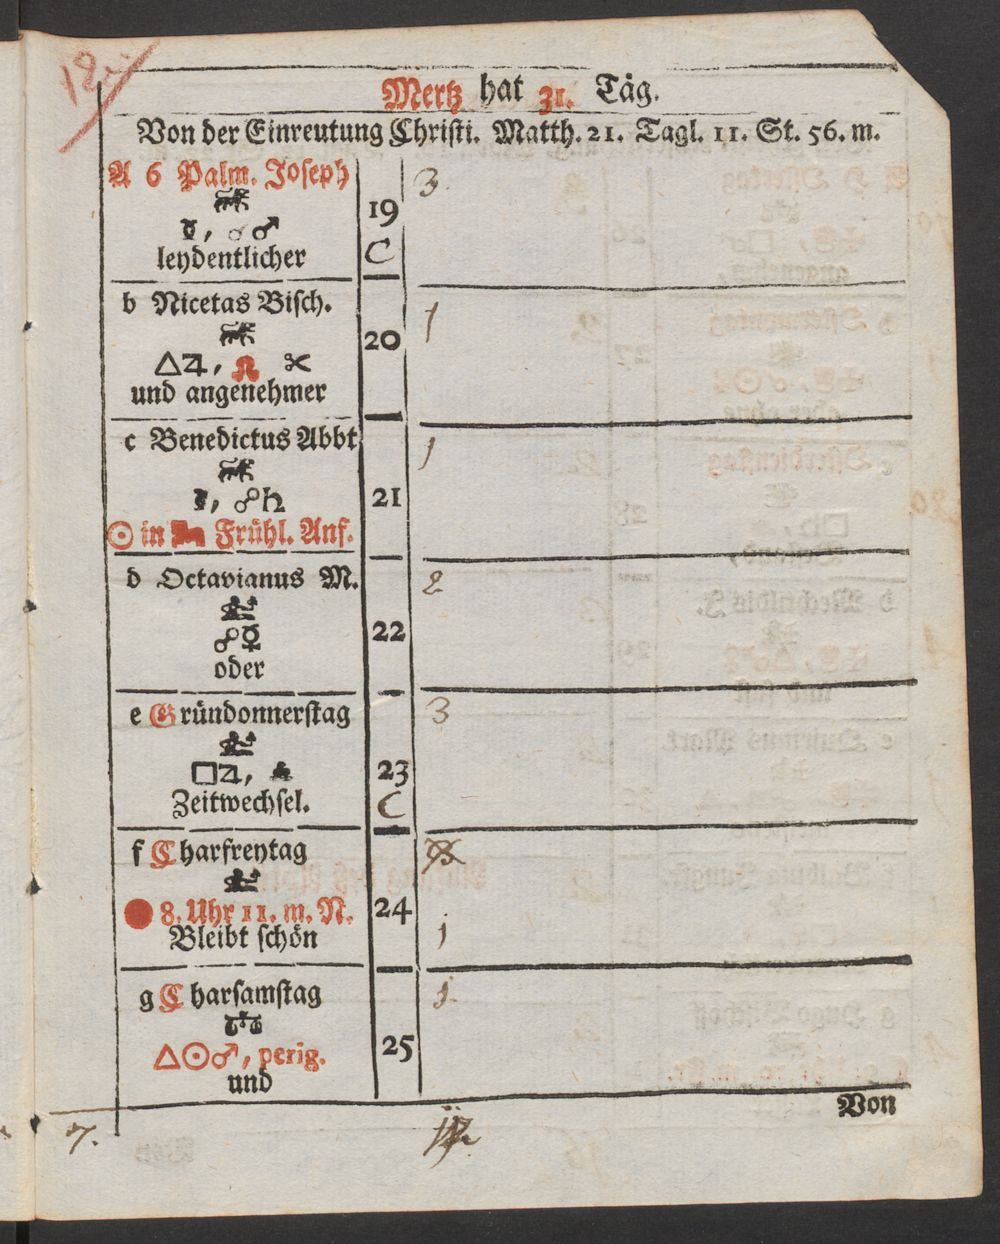 12
Mertz hat 31. Täg.
Von der Einreutung Christi. Matth. 21. Tagl. 11. St. 56. m.
A 6 Palm. Joseph
☿, ☌♂
leydentlicher
19
C
3
b Nicetas Bisch.
△♃, ♌ ✂
und angenehmer
20
1
c Benedictus Abbt
☍♄
☉ in Frühl. Anf.
21
1
d Octavianus M.
☍☿
oder
22
2
e Gründonnerstag
□♃,
Zeitwechsel.
23
C
3
f Charfreytag
● 8. Uhr 11. m. N.
Bleibt schön
24
1
g Charsamstag
♎
△☉♂, perig.
und
25
1
Von
7.